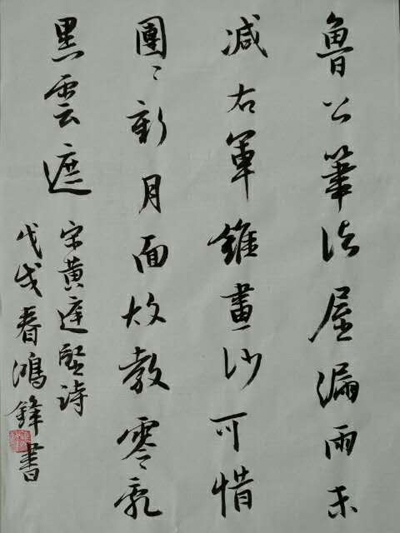 魯公筆法屋漏雨未
減右軍錐畫沙可惜
團〻新月面故教零亂
黑雲遮
宋黃庭堅詩
戊戌春鴻鋒書